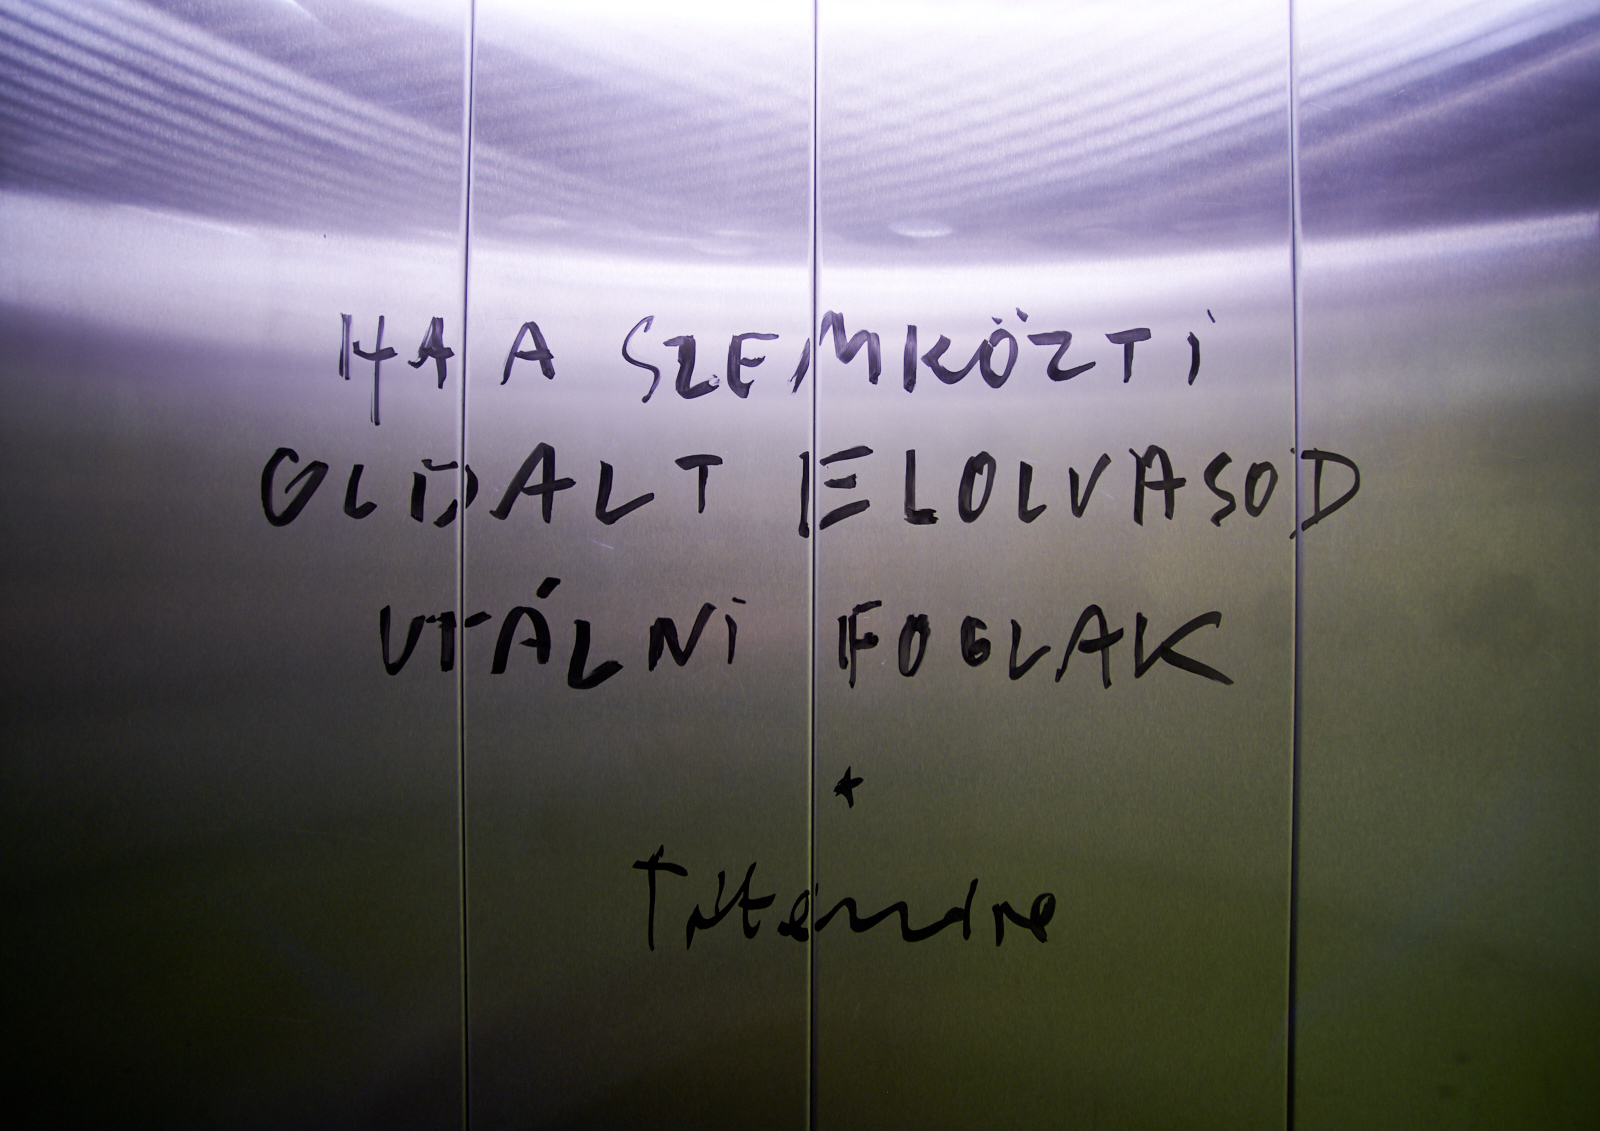 HA A SZEMKÖZTI
OLDALT ELOLVASOD
UTÁLNI FOGLAK